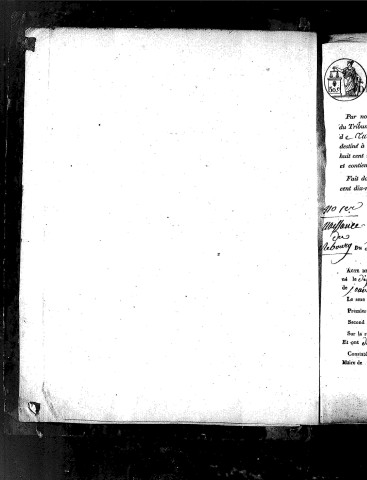 Par no
du Tribun
destiné à
huit cent
et contien
Fait do
cent dix-n
No 1er
Naissance
de
Rebourg Du
ACTE DE
né le
de
Le sexe
Premier
Second
Sur la r
Et ont
Constaté
Maire de